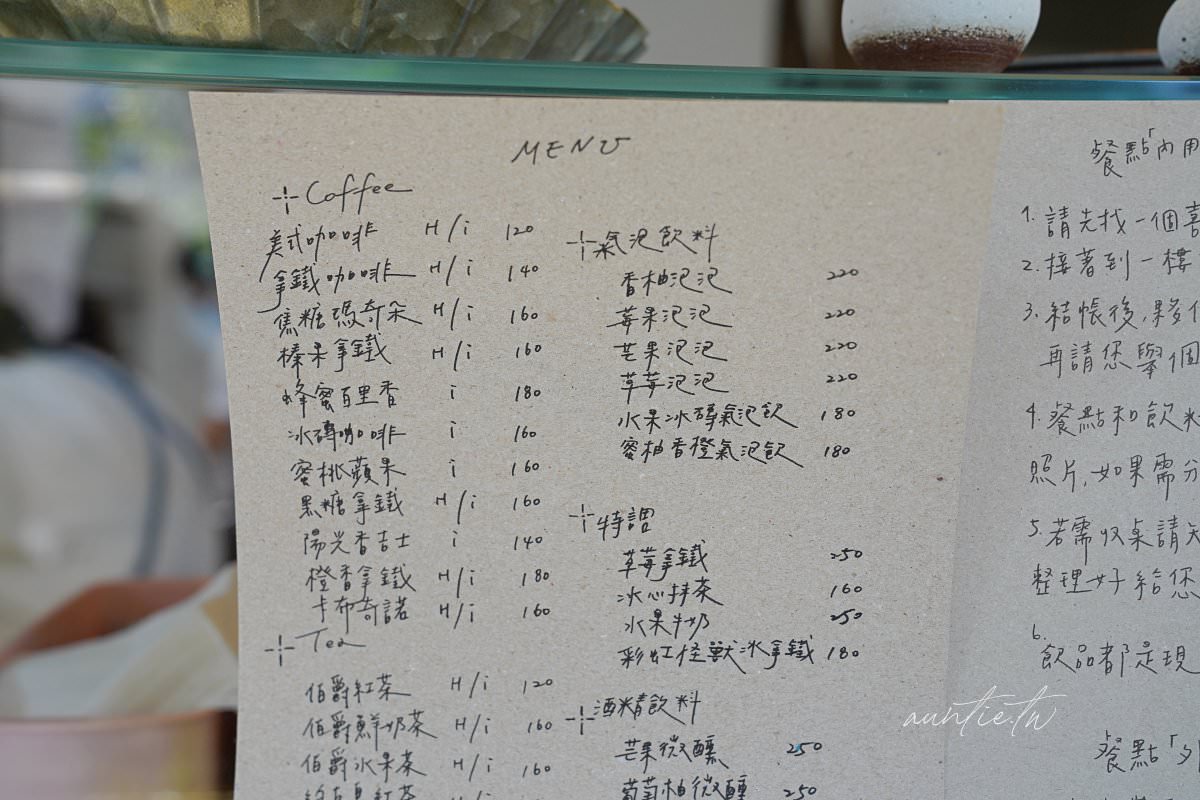 MENU
Coffee
美式咖啡 H/i 120
拿鐵咖啡 H/i 140
焦糖瑪奇朵 H/i 160
榛果拿鐵 H/i 160
蜂蜜百里香 i 180
冰磚咖啡 i 160
蜜桃蘋果 i 160
黑糖拿鐵 H/i 160
陽光香吉士 i 140
橙香拿鐵 H/i 180
卡布奇諾 H/i 160
Tea
伯爵紅茶 H/i 120
伯爵鮮奶茶 H/i 160
伯爵水果茶 H/i 160
紅茶
氣泡飲料
香柚泡泡 220
莓果泡泡 220
芒果泡泡 220
草莓泡泡 220
水果冰磚氣泡飲 180
蜜柚香橙氣泡飲 180
特調
草莓拿鐵 250
冰心抹茶 160
水果牛奶 250
彩虹怪獸冰拿鐵 180
酒精飲料
芒果微醺 250
葡萄柚微醺 250
餐點「內用
1. 請先找一個喜
2. 接著到一樓
3. 結帳後,夥伴
再請您舉個
4. 餐點和飲料
照片,如果需分
5. 若需收桌請
整理好給您
6.
飲品都是現
餐點「外
auntie.tw